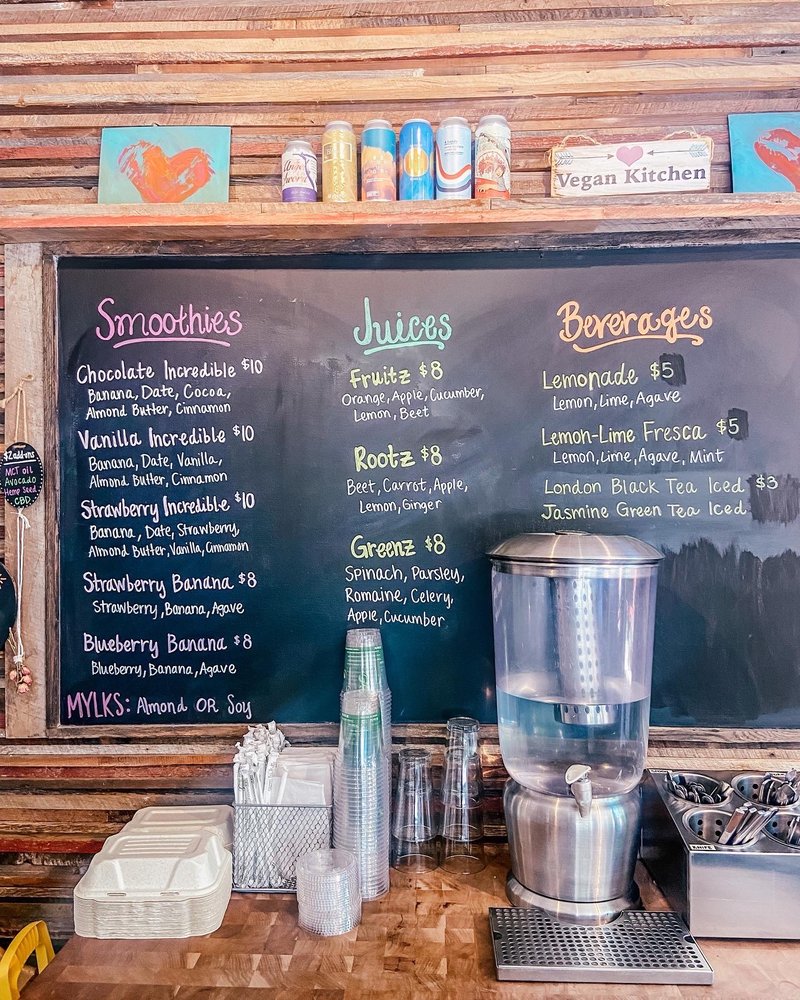 Vegan Kitchen
$2 add-ons
MCT oil
Avocado
Hemp Seed
CBD
Smoothies
Chocolate Incredible $10
Banana, Date, Cocoa,
Almond Butter, Cinnamon
Vanilla Incredible $10
Banana, Date, Vanilla,
Almond Butter, Cinnamon
Strawberry Incredible $10
Banana, Date, Strawberry,
Almond Butter, Vanilla, Cinnamon
Strawberry Banana $8
Strawberry, Banana, Agave
Blueberry Banana $8
Blueberry, Banana, Agave
MYLKS: Almond OR Soy
Juices
Fruitz $8
Orange, Apple, Cucumber,
Lemon, Beet
Rootz $8
Beet, Carrot, Apple,
Lemon, Ginger
Greenz $8
Spinach, Parsley,
Romaine, Celery,
Apple, Cucumber
Beverages
Lemonade $5
Lemon, Lime, Agave
Lemon-Lime Fresca $5
Lemon, Lime, Agave, Mint
London Black Tea Iced $3
Jasmine Green Tea Iced
KNIFE